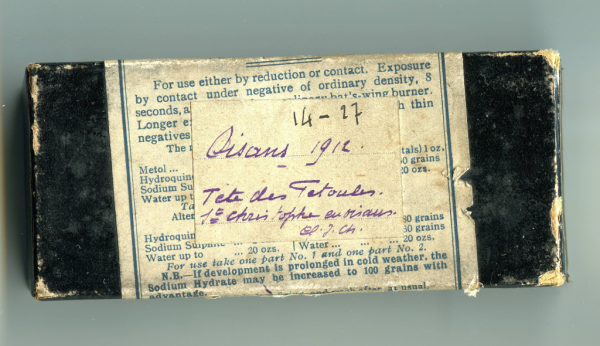 For use either by reduction or contact. Exposure
by contact under negative of ordinary density, 8
seconds, a bat's-wing burner.
Longer e h thin
negatives
14-27
Oisans 1912
The tals) 1 oz.
Metol ... 0 grains
Hydroquin 20 ozs.
Sodium Su
Water up t
Tete des Fetoules.
Ta
St Christophe en oisans.
Alter
Hydroquin 80 grains
Sodium Sulphite ... 30 grains
Water up to ... 20 ozs. Water ... ... 20 ozs.
For use take one part No. 1 and one part No. 2.
N.B.—If development is prolonged in cold weather, the
Sodium Hydrate may be increased to 100 grains with
advantage.